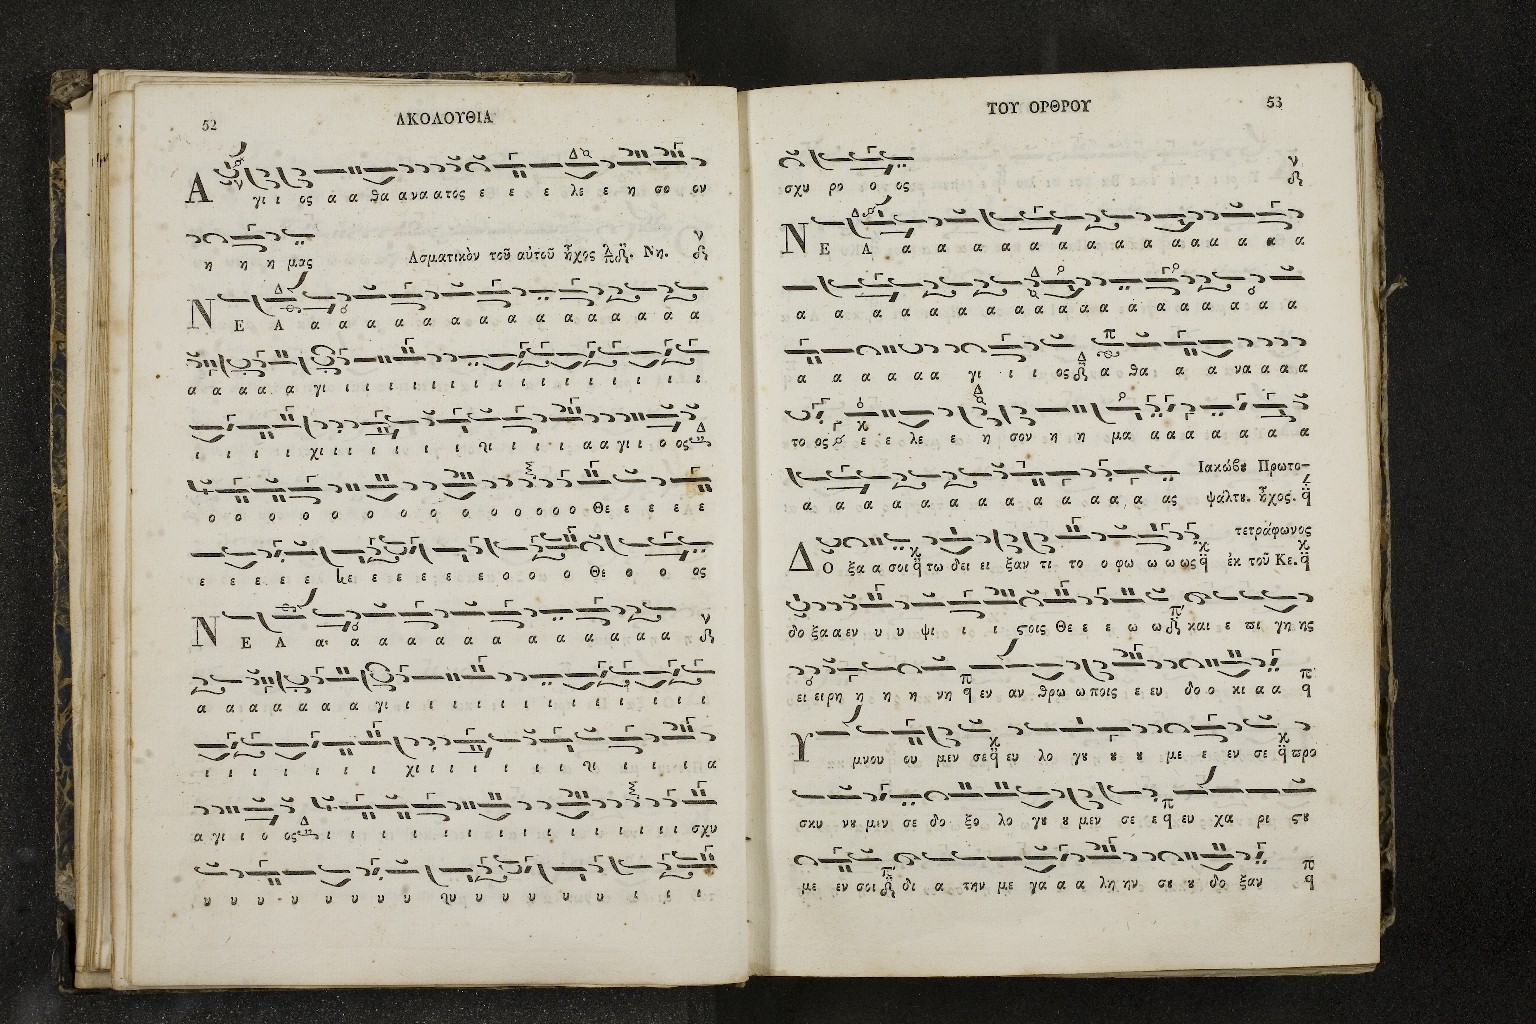 52
ΑΚΟΛΟΥΘΙΑ
Α γι ι ος α α θα α να α τος ε ε ε λε ε η σο ον
η η η μας Ασματικὸν τοῦ αὐτοῦ ἦχος Νη.
Ν Ε Α α α α α α α α α α α α α α α
α α α α α γι ι ι ι ι ι ι ι ι ι ι ι ι ι ι
ι ι ι ι χι ι ι ι ι ι ι ι ι ι ι α α γι ι ο ος
ο ο ο ο ο ο ο ο ο ο ο ο ο Θε ε ε ε ε
ε ε ε ε ε ε ε ε ε ε ο ο ο Θε ο ο ος
Ν Ε Α α α α α α α α α α α α α
α α α α α α α γι ι ι ι ι ι ι ι ι ι ι ι
ι ι ι ι ι ι χι ι ι ι ι ι ι ι ι ι ι α
α γι ι ο ος ι ι ι ι ι ι ι ι ι ι ι ι ι ι ι σχυ
υ υ υ υ υ υ υ υ υ υ υ υ υ υ ι ι ι
ΤΟΥ ΟΡΘΡΟΥ
53
σχυ ρο ο ος
Ν Ε Α α α α α α α α α α α α α α α
α α α α α α α α α α α α α α α α
α α α α α α γι ι ι ος α θα α α να α α α
το ος ε ε λε ε η σον η η μα α α α α α α α
α α α α α α α α α α α α ας Ιακώβου Πρωτο-
ψάλτου. ἦχος.
Δ Ο ξα α σοι τω δει ει ξαν τι το ο φω ω ω ως τετράφωνος
ἐκ τοῦ Κε.
δο ξα α εν υ υ ψι ι ι ι ςοις Θε ε ε ω ω και ε πι γη ης
ει ειρη η η η νη εν αν θρω ω ποις ε ευ δο ο κι α α
Υ μνου ου μεν σε ευ λο γου ου ου με ε εν σε προ
σκυ νου μιν σε δο ξο λο γου ου μεν σε ε ευ χα ρι ςου
με εν σοι δι α την με γα α α λη ην σου ου δο ξαν